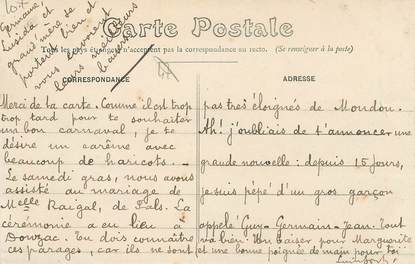 Carte Postale
Tous les pays étrangers n'acceptent pas la correspondance au recto. (Se renseigner à la poste)
CORRESPONDANCE
ADRESSE
Germaine
Lucida et
grand'mère se
portent bien et
vous envoient
leurs meilleurs
baisers
Merci de ta carte. Comme il est trop
trop tard pour te souhaiter
un bon carnaval, je te
désire un carême avec
beaucoup de haricots.
Le samedi gras, nous avons
assisté au mariage de
Melle Raigal, de Fals. La
cérémonie a eu lieu à
Donzac. Tu dois connaître
ces parages, car ils ne sont
pas très éloignés de Moudon.
Ah! j'oubliais de t'annoncer une
grande nouvelle: depuis 15 jours,
je suis pépé d'un gros garçon
appelé Guy-Germain-Jean. Tout
va bien. Un baiser pour Marguerite
et une bonne poignée de main pour toi